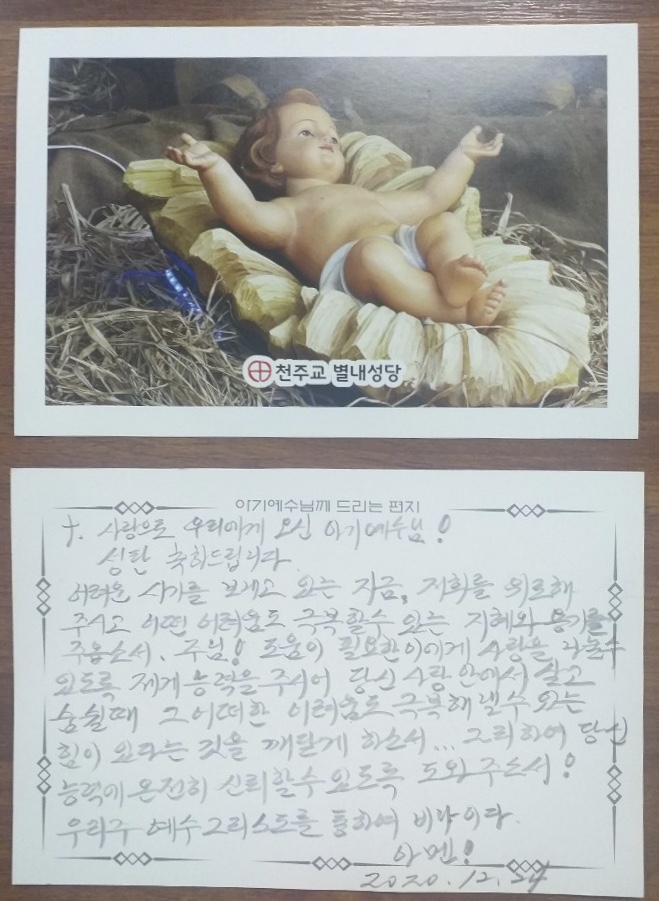 천주교 별내성당
아기예수님께 드리는 편지
†. 사랑으로 우리에게 오신 아기예수님!
성탄 축하드립니다.
어려운 시기를 보내고 있는 지금, 저희를 위로해
주시고 어떤 어려움도 극복할수 있는 지혜와 용기를
주옵소서. 주님! 도움이 필요한이에게 사랑을 나눌수
있도록 제게 능력을 주시어 당신 사랑 안에서 살고
숨쉴때 그 어떠한 어려움도 극복해 낼수 있는
힘이 있다는 것을 깨닫게 하소서... 그리하여 당신
능력에 온전히 신뢰할수 있도록 도와주소서!
우리주 예수그리스도를 통하여 비나이다.
아멘!
2020.12.24